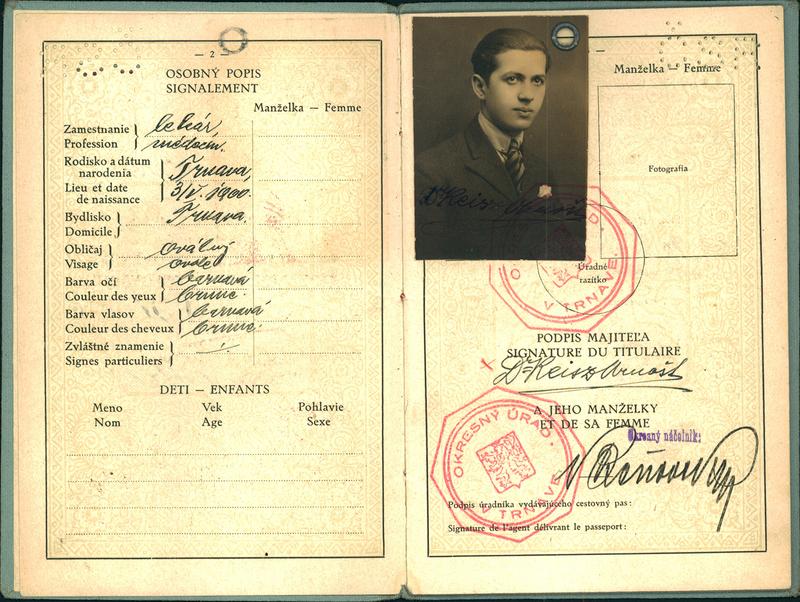 — 2 —
OSOBNÝ POPIS
SIGNALEMENT
Manželka — Femme
Zamestnanie
Profession
lekár,
médecin.
Rodisko a dátum
narodenia
Lieu et date
de naissance
Trnava,
3/V. 1900.
Bydlisko
Domicile
Trnava.
Obličaj
Visage
oválný
ovale
Barva očí
Couleur des yeux
barnavá
brune.
Barva vlasov
Couleur des cheveux
barnavá
brune.
Zvláštné znamenie
Signes particuliers
DETI — ENFANTS
Meno Vek Pohlavie
Nom Age Sexe
Manželka — Femme
Fotografia
Dr Reisz Arnošt
V TRNAVE
Úradné
razítko
PODPIS MAJITEĽA
SIGNATURE DU TITULAIRE
Dr Reisz Arnošt
A JEHO MANŽELKY
ET DE SA FEMME
Okresný náčelník:
OKRESNÝ ÚRAD.
V TRNAVE
Podpis úradníka vydávajúceho cestovný pas:
Signature de l'agent délivrant le passeport: